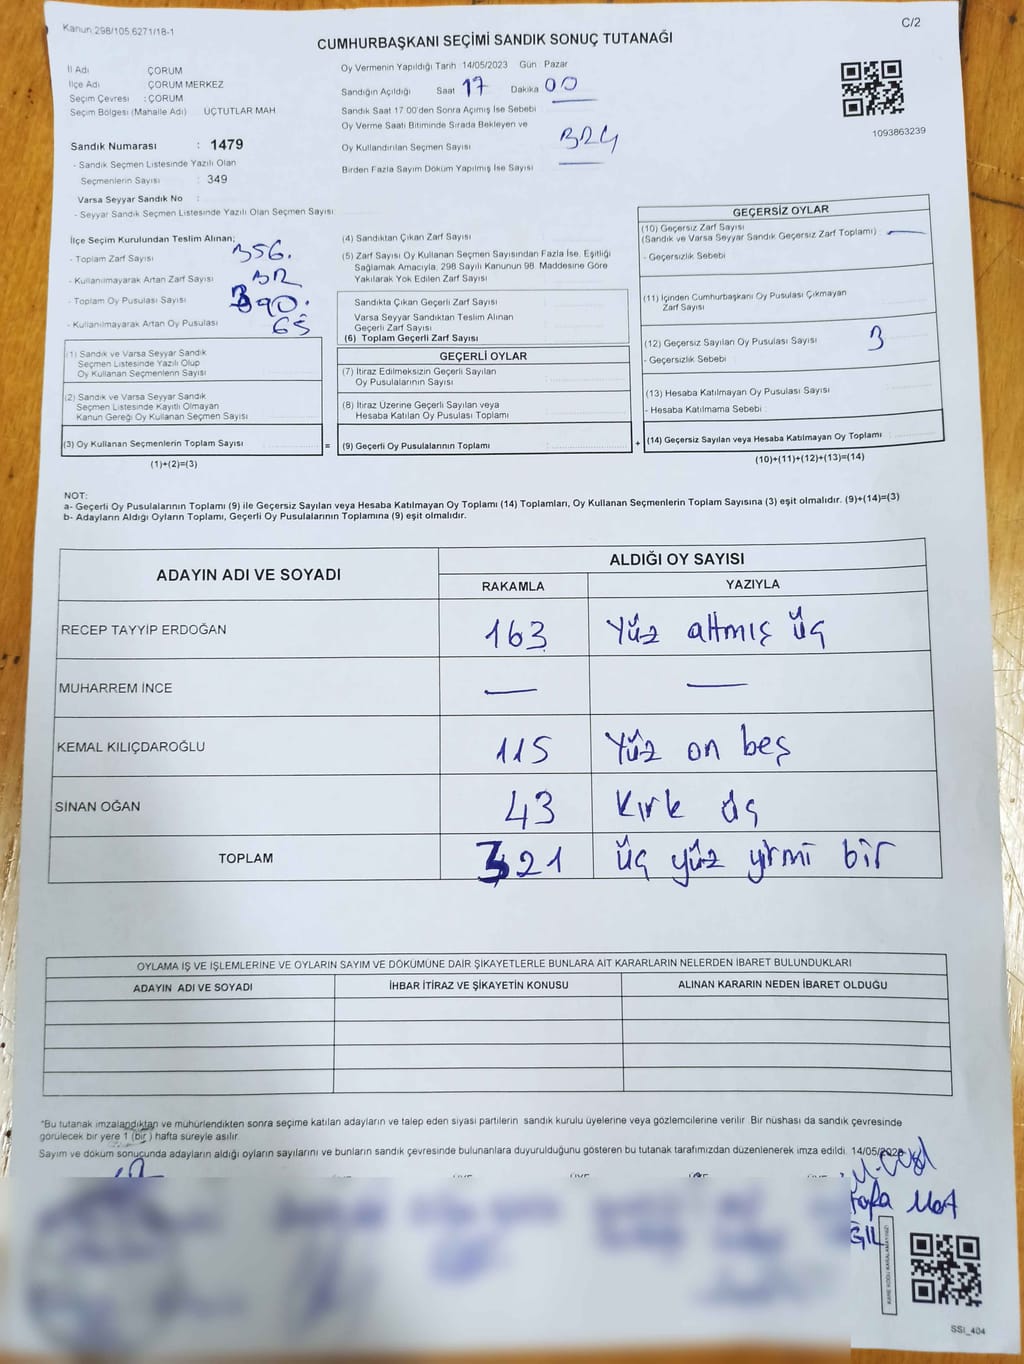 Kanun 298/105.6271/18-1
C/2
CUMHURBAŞKANI SEÇİMİ SANDIK SONUÇ TUTANAĞI
İl Adı ÇORUM
İlçe Adı ÇORUM MERKEZ
Seçim Çevresi : ÇORUM
Seçim Bölgesi (Mahalle Adı) ÜÇTUTLAR MAH
Sandık Numarası : 1479
- Sandık Seçmen Listesinde Yazılı Olan
Seçmenlerin Sayısı : 349
Varsa Seyyar Sandık No :
- Seyyar Sandık Seçmen Listesinde Yazılı Olan Seçmen Sayısı
Oy Vermenin Yapıldığı Tarih 14/05/2023 Gün Pazar
Sandığın Açıldığı Saat 17 Dakika 00
Sandık Saat 17 00'den Sonra Açımış İse Sebebi
Oy Verme Saati Bitiminde Sırada Bekleyen ve
Oy Kullandırılan Seçmen Sayısı 324
Birden Fazla Sayım Döküm Yapılmış İse Sayısı
1093863239
İlçe Seçim Kurulundan Teslim Alınan;
- Toplam Zarf Sayısı 356.
- Kullanılmayarak Artan Zarf Sayısı 32
- Toplam Oy Pusulası Sayısı 390.
- Kullanılmayarak Artan Oy Pusulası 65
(1) Sandık ve Varsa Seyyar Sandık
Seçmen Listesinde Yazılı Olup
Oy Kullanan Seçmenlerin Sayısı
(2) Sandık ve Varsa Seyyar Sandık
Seçmen Listesinde Kayıtlı Olmayan
Kanun Gereği Oy Kullanan Seçmen Sayısı
(3) Oy Kullanan Seçmenlerin Toplam Sayısı
(1)+(2)=(3)
(4) Sandıktan Çıkan Zarf Sayısı
(5) Zarf Sayısı Oy Kullanan Seçmen Sayısından Fazla İse, Eşitliği
Sağlamak Amacıyla, 298 Sayılı Kanunun 98. Maddesine Göre
Yakılarak Yok Edilen Zarf Sayısı
Sandıkta Çıkan Geçerli Zarf Sayısı
Varsa Seyyar Sandıktan Teslim Alınan
Geçerli Zarf Sayısı
(6) Toplam Geçerli Zarf Sayısı
GEÇERLİ OYLAR
(7) İtiraz Edilmeksizin Geçerli Sayılan
Oy Pusulalarının Sayısı
(8) İtiraz Üzerine Geçerli Sayılan veya
Hesaba Katılan Oy Pusulası Toplamı
= (9) Geçerli Oy Pusulalarının Toplamı +
GEÇERSİZ OYLAR
(10) Geçersiz Zarf Sayısı
(Sandık ve Varsa Seyyar Sandık Geçersiz Zarf Toplamı) : —
- Geçersizlik Sebebi
(11) İçinden Cumhurbaşkanı Oy Pusulası Çıkmayan
Zarf Sayısı
(12) Geçersiz Sayılan Oy Pusulası Sayısı 3
- Geçersizlik Sebebi
(13) Hesaba Katılmayan Oy Pusulası Sayısı
- Hesaba Katılmama Sebebi :
(14) Geçersiz Sayılan veya Hesaba Katılmayan Oy Toplamı
(10)+(11)+(12)+(13)=(14)
NOT:
a- Geçerli Oy Pusulalarının Toplamı (9) ile Geçersiz Sayılan veya Hesaba Katılmayan Oy Toplamı (14) Toplamları, Oy Kullanan Seçmenlerin Toplam Sayısına (3) eşit olmalıdır. (9)+(14)=(3)
b- Adayların Aldığı Oyların Toplamı, Geçerli Oy Pusulalarının Toplamına (9) eşit olmalıdır.
ADAYIN ADI VE SOYADI
ALDIĞI OY SAYISI
RAKAMLA YAZIYLA
RECEP TAYYİP ERDOĞAN 163 Yüz altmış üç
MUHARREM İNCE — —
KEMAL KILIÇDAROĞLU 115 Yüz on beş
SİNAN OĞAN 43 Kırk üç
TOPLAM 321 üç yüz yirmi bir
OYLAMA İŞ VE İŞLEMLERİNE VE OYLARIN SAYIM VE DÖKÜMÜNE DAİR ŞİKAYETLERLE BUNLARA AİT KARARLARIN NELERDEN İBARET BULUNDUKLARI
ADAYIN ADI VE SOYADI İHBAR İTİRAZ VE ŞİKAYETİN KONUSU ALINAN KARARIN NEDEN İBARET OLDUĞU
*Bu tutanak imzalandıktan ve mühürlendikten sonra seçime katılan adayların ve talep eden siyasi partilerin sandık kurulu üyelerine veya gözlemcilerine verilir Bir nüshası da sandık çevresinde
görülecek bir yere 1 (bir) hafta süreyle asılır.
Sayım ve döküm sonucunda adayların aldığı oyların sayılarını ve bunların sandık çevresinde bulunanlara duyurulduğunu gösteren bu tutanak tarafımızdan düzenlenerek imza edildi. 14/05/2023
KARE KODU KARALAMAYINIZ!
SSİ_404